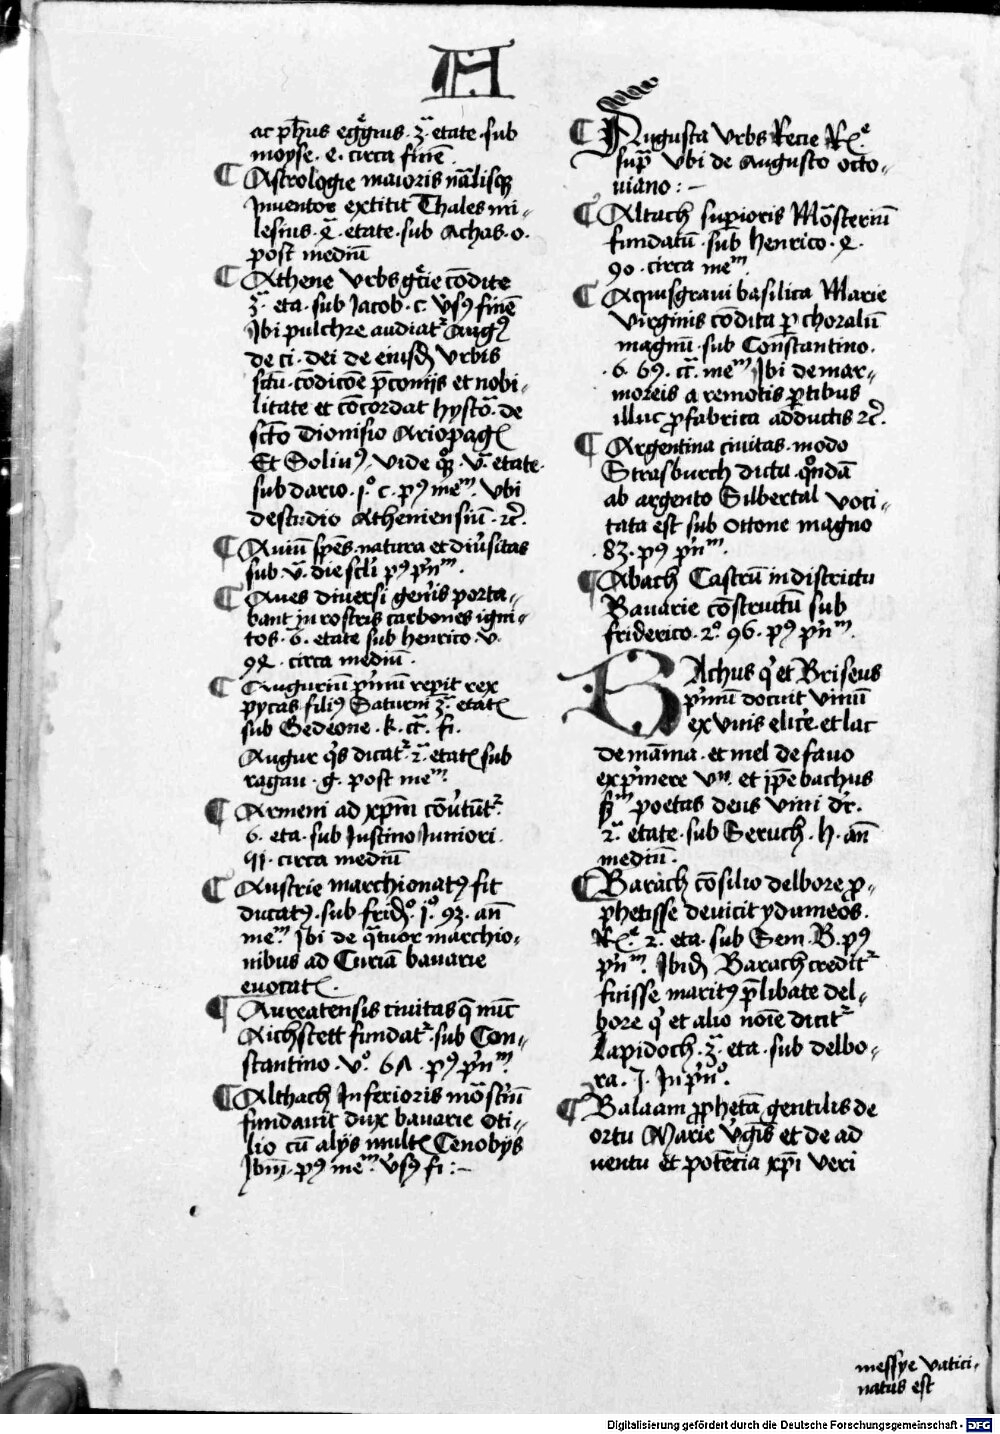 A
ac ph̅us egg̅ius · 3ᵃ etate · sub
moyse · e · circa fine̅
¶ Astrologie maioris na̅lisqꝫ
Inuentor extitit Thales mi-
lesius · 4ᵃ · etate · sub Achas · o ·
post mediu̅
¶ Athene Vrbs g̅cie co̅dite
3ᵃ · eta · sub Jacob · c · Vsꝰ fine̅
Ibi pulchre audiat̉ Augꝰ
de ci · dei de eiusd̅ Vrbis
situ · co̅dico̅e p̅conijs et nobi-
litate et co̅cordat hysto̅ · de
sc̅to Dionisio Ariopag
Et Soliuꝰ · Vide · v̅ · etate ·
sub dario · j° c · pꝰ meᵐ · Vbi
de studio Atheniensiu̅ · ⁊c̅ ·
¶ Auiu̅ sp̅es · natura et diủsitas
sub · v̅ · die pꝰ p̅nᵐ ·
¶ Aues diuersi gen̉is porta-
bant in rostris carbones igni-
tos · 6̅ · etate sub henrico · v ·
94 · circa mediu̅ ·
¶ Auguriu̅ p̉mu̅ rep̉it rex
pycas · filiꝰ Saturni 3ᵃ · etat
sub Gedeone · k · ct̅ · fi ·
Augur q̉s dicat̉ · 2ᵃ · etat sub
ragau · g · post meᵐ ·
¶ Armeni ad xp̅m co̅ủtu̅t̉
6 · eta · sub Justino Juniori ·
circa mediu̅
¶ Austrie marchionatꝰ fit
ducatꝰ · sub frid° · j° · 93 · an̅
meᵐ Ibi de q̅tuor marchio-
nibus ad Curia̅ bauarie
euocat ·
¶ Aureatensis ciuitas q̅ nu̅c
Aichstett fundat̉ · sub Con-
stantino · v° · 61 · pꝰ p̉nᵐ ·
¶ Althach Inferioris mo̅st̉iu̅
fundauit dux bauarie Oti-
lio cu̅ alijs mult Cenobijs
Ibi̅ · pꝰ meᵐ · v̉sꝰ fi : -
¶ Augusta Vrbs Recie
sup̅ Vbi de Augusto octo-
uiano : -
¶ Altach sup̉ioris Mo̅steriu̅
fundatu̅ · sub henrico · 4 ·
90 · circa meᵐ ·
¶ Acquisgrani basilica Marie
Virginis co̅dita p̱ choralu̅
magnu̅ · sub Constantino ·
· 6 · 69 · ct̅ · meᵐ Ibi de mar-
moreis a remotis p̱tibus
illuc p̱ fabrica adductis ⁊c̅ ·
¶ Argentina ciuitas · modo
Strasburch dicta q̊nda̅
ab argento Silbertal voci-
tata est sub Ottone magno
· 83 · pꝰ p̉nᵐ ·
¶ Abach Castru̅ in districtu
Bauarie co̅structu̅ sub
friderico · 2° · 96 · pꝰ p̉nᵐ ·
BAchus q̉ et Briseus
p̉mu̅ docuit vinu̅
ex vuis elic̉e · et lac
de ma̅ma · et mel de fauo
exp̉mere vn̅ · et ip̅e bachus
poetas deus vini dr̅ ·
2ᵃ · etate · sub Seruch · h · an̅
mediu̅ ·
¶ Barach co̅silio delbore p̱-
phetisse deuicit ydumeos ·
2 · eta · sub Sem · B · pꝰ
p̉nᵐ · Ibid̅ Barach credit̉
fuisse maritꝰ p̅libate del-
bore q̉ et alio no̅ie dicit̉
Lapidoch · 3ᵃ · eta · sub delbo-
ra · J · In p̉n° ·
¶ Balaam p̱pheta̅ gentilis de
ortu Marie v̉g̅is et de ad
uentu et pote̅cia xp̅i veri
messye vatici-
natus est
Digitalisierung gefördert durch die Deutsche Forschungsgemeinschaft - DFG